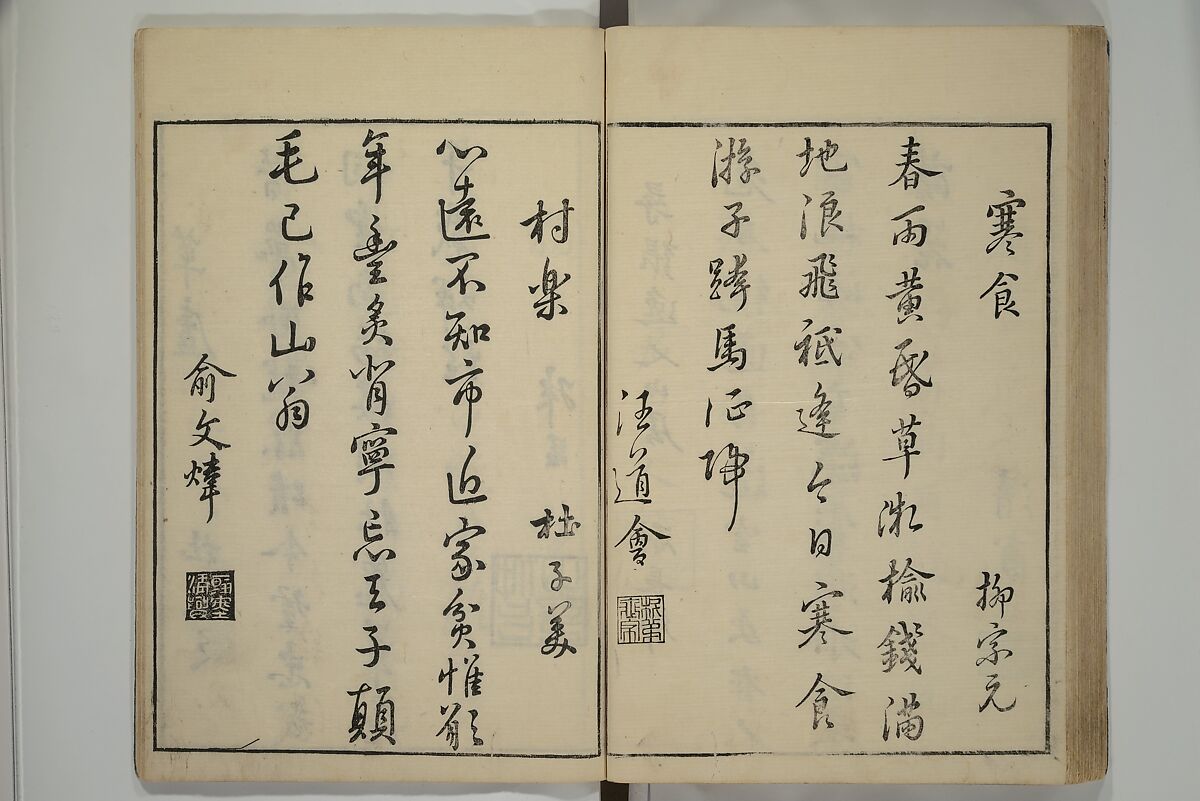 寒食　柳宗元
春雨黃昏草淑榆錢滿
地浪飛祇逢今日寒食
游子跨馬征歸
汪道會
村楽　杜子美
心遠不知市近家貧惟願
年豐炙背寧忘天子顛
毛已作山翁
俞文煒